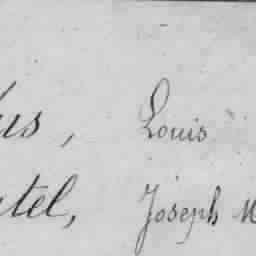 us, Louis
tel, Joseph M